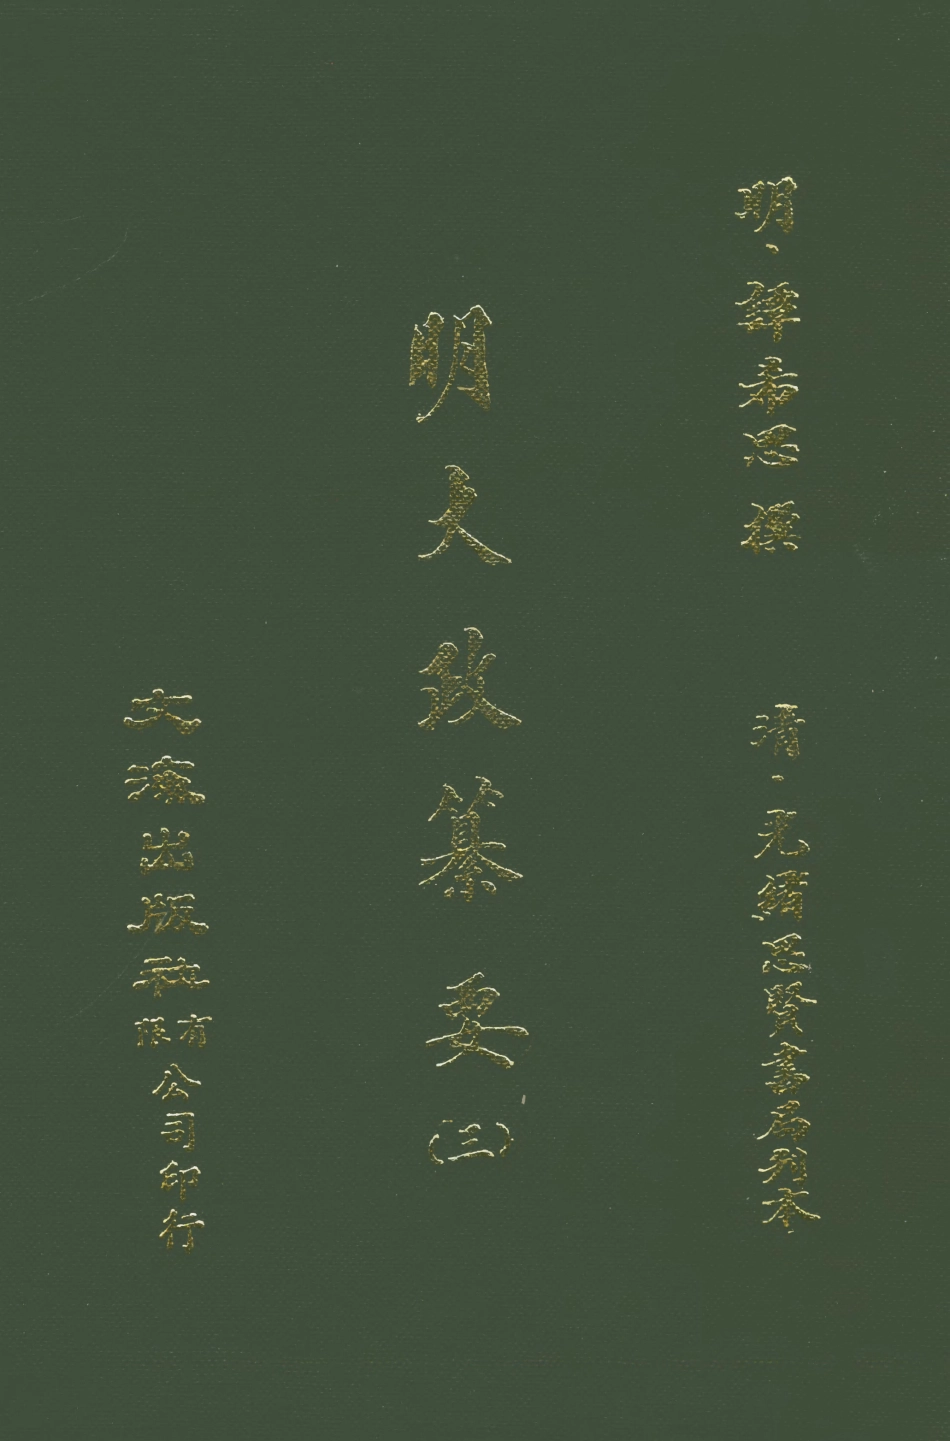 明·譚希思撰　清·光緒思賢書局刊本
明大政纂要(三)
文海出版社有限公司印行